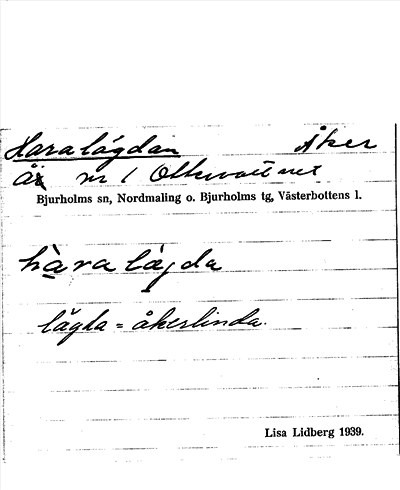 Haralägdan Åker
Åx nr 1 Ottervattnet
Bjurholms sn, Nordmaling o. Bjurholms tg, Västerbottens l.
hàra lägda
lägda = åkerlinda.
Lisa Lidberg 1939.